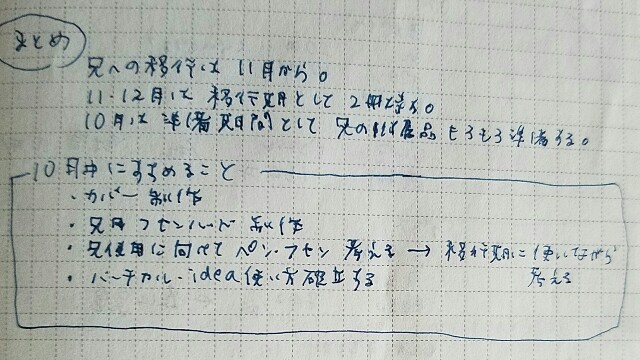 まとめ
兄への移行は 11月から。
11・12月は 移行期として 2冊持ち。
10月は 準備期間として 兄の付属品もろもろ準備する。
10月中にすすめること
・カバー製作
・兄用フセンボード製作
・兄使用に向けてペン・フセン 考える → 移行期に使いながら
考える
・バーチカル・idea使い方確立する